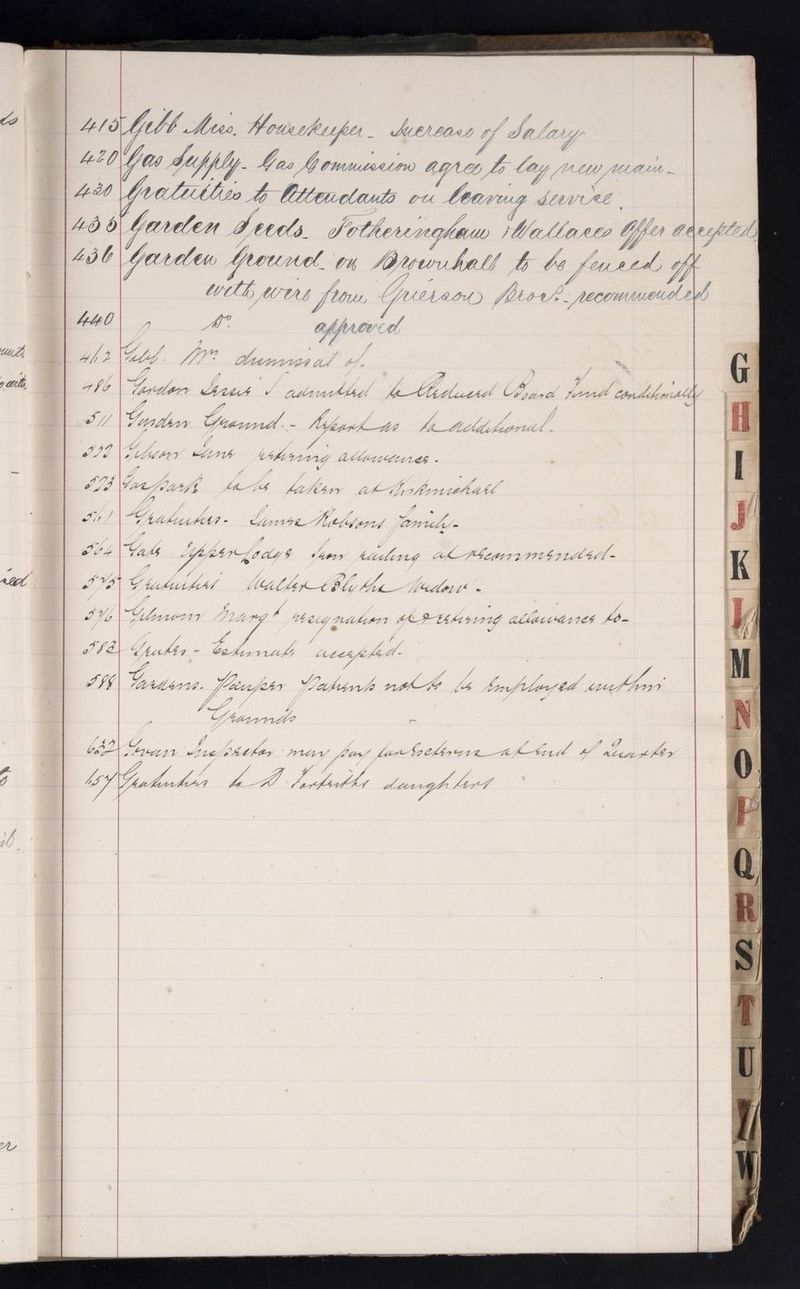 415 Gibb Miss. Housekeeper - Increase of Salary
420 Gas Supply - Gas Commission agree to lay new main -
420 Gratuities to Attendants on leaving service.
435 Garden Seeds - Fotheringham & Wallaces Offer accepted
436 Garden Ground - on Brownhall to be fenced off
with wire from Grierson Bros. - recommended
440 Do. approved
462 Gibb. Mrs dismissal of -
486 Gordon Jessie J admitted to Reduced Board Fund conditionally
511 Garden Ground - Report as to additional -
522 Gibson Jane retiring allowance -
523 to be taken at Kirkmichael
561 Gratuities - James Robsons family -
564 Gate Upper Lodge Iron railing at recommended -
575 Gratuities Walter Blyths Widow -
576 Gilmour Margt resignation of & retiring allowance to -
582 Grates - Estimate accepted -
588 Gardens. Pauper Patients not to be employed within
Grounds
632 Govan Inspector may pay for at end of Quarter
657 Gratuities to D daughters
G
H
I
J
K
M
N
O
P
Q
R
S
T
U
W